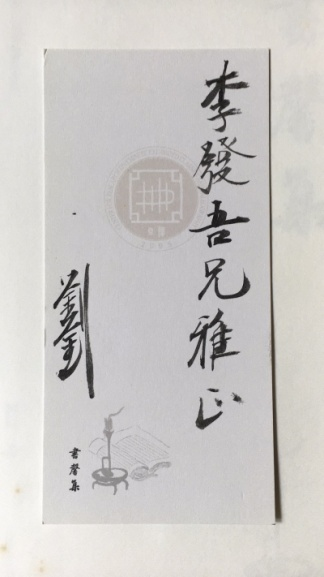 李發吾兄雅正
劉
書馨集